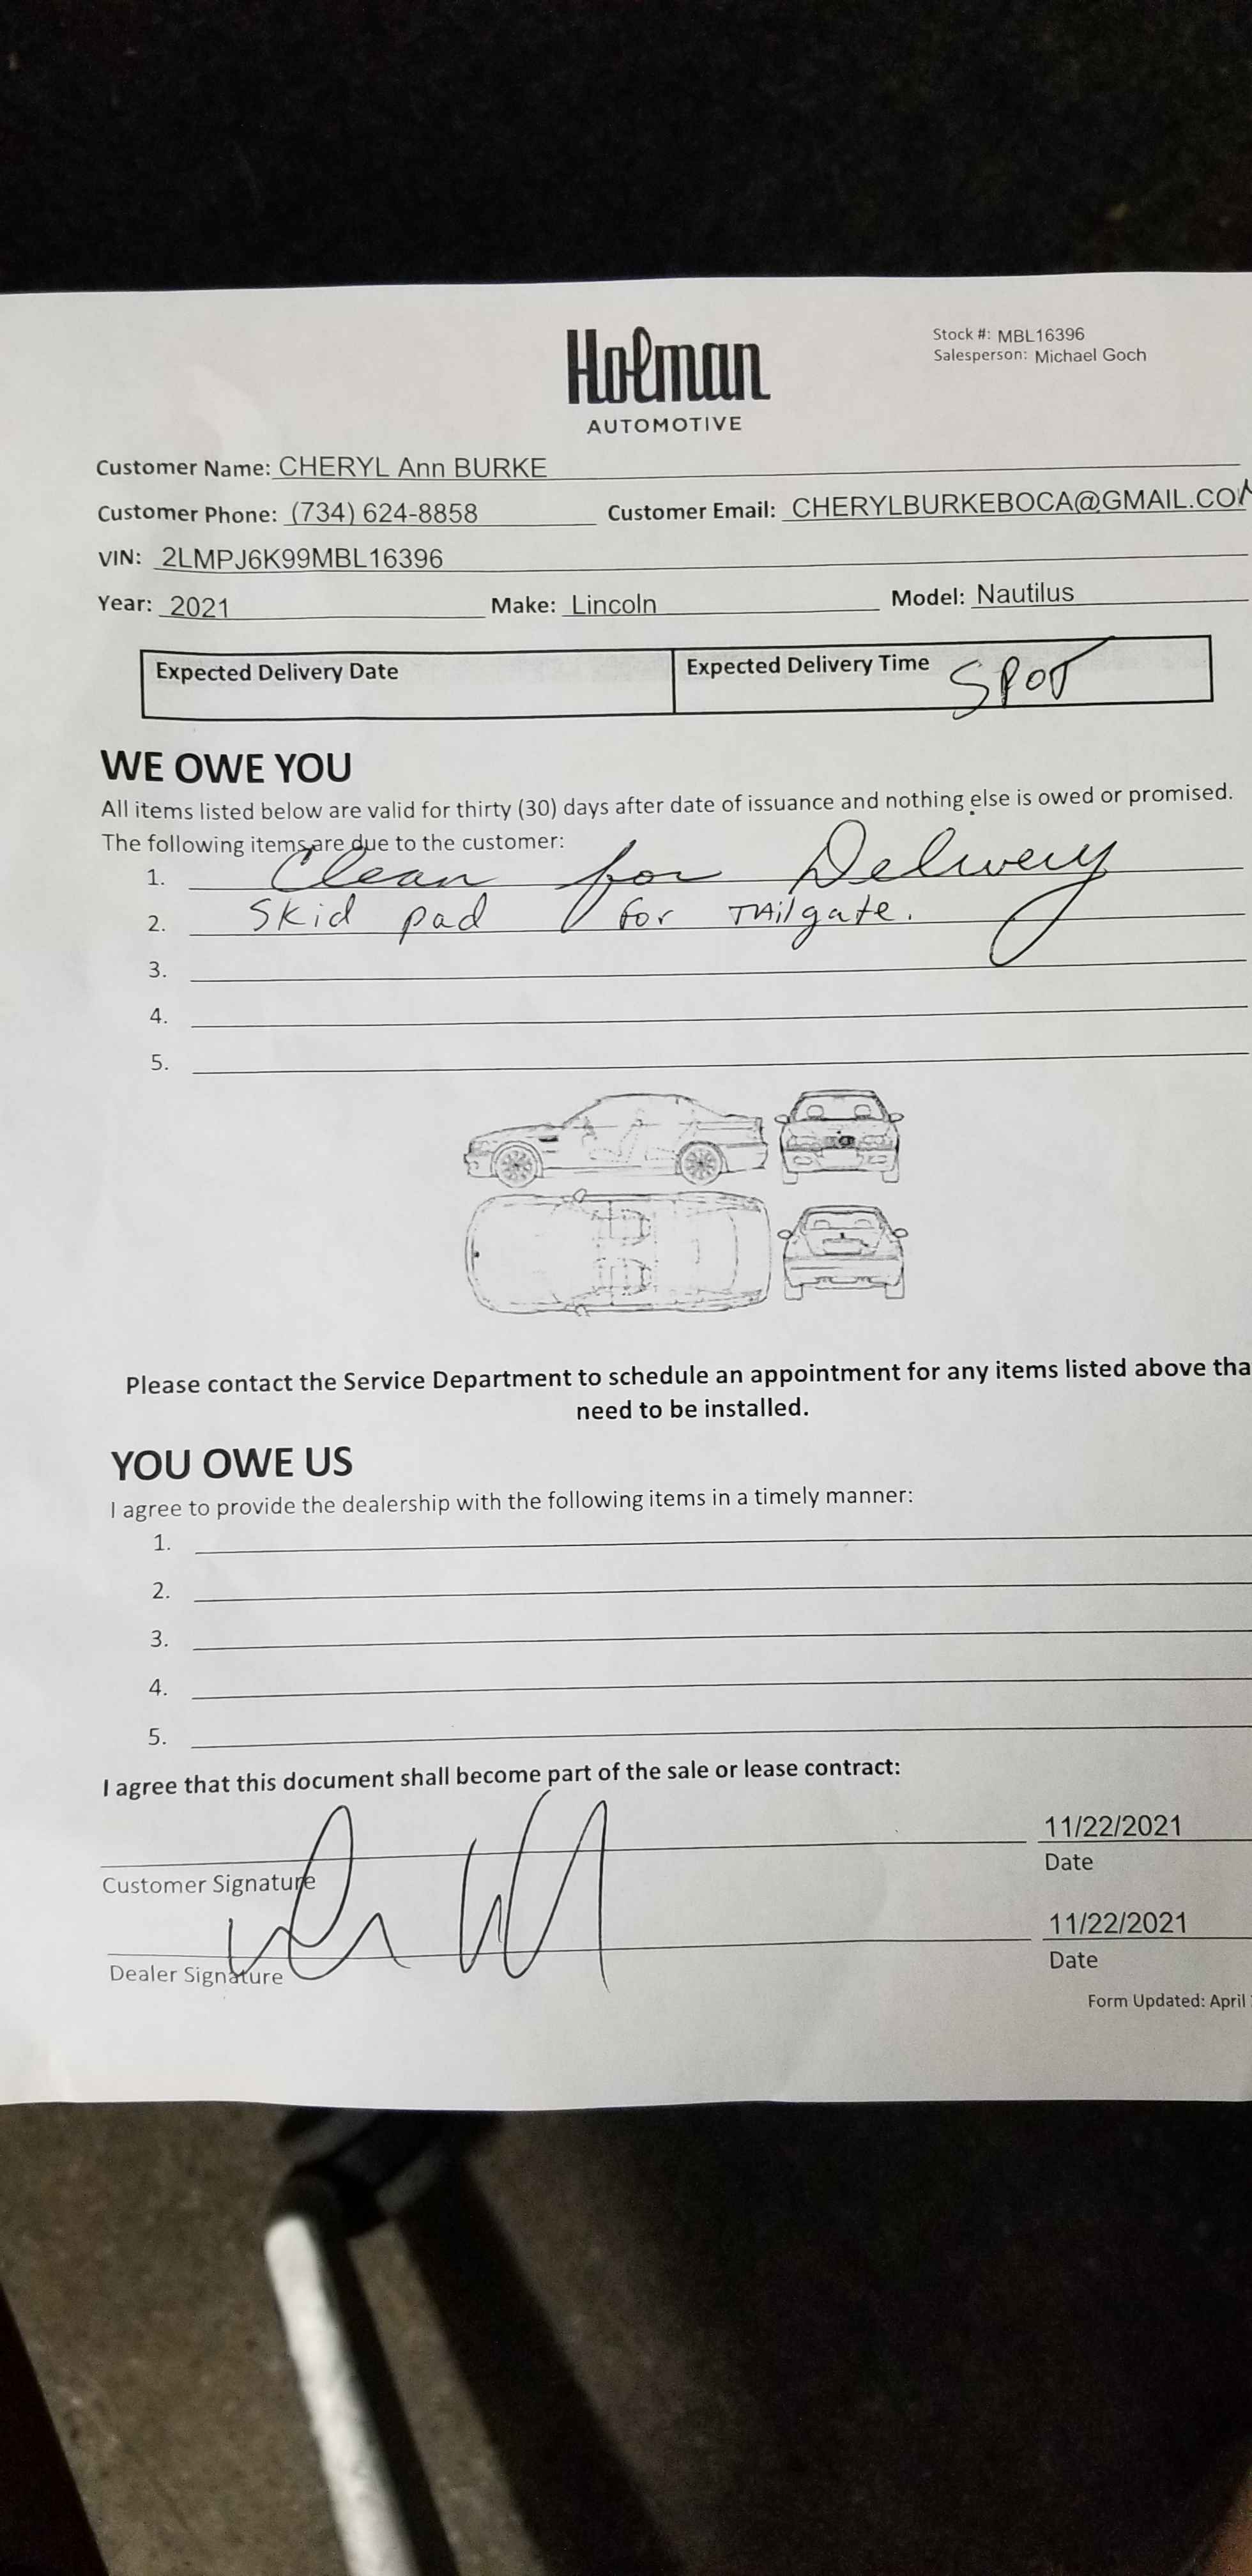 Holman
AUTOMOTIVE
Stock #: MBL16396
Salesperson: Michael Goch
Customer Name: CHERYL Ann BURKE
Customer Phone: (734) 624-8858 Customer Email: CHERYLBURKEBOCA@GMAIL.COM
VIN: 2LMPJ6K99MBL16396
Year: 2021 Make: Lincoln Model: Nautilus
Expected Delivery Date Expected Delivery Time SPOT
WE OWE YOU
All items listed below are valid for thirty (30) days after date of issuance and nothing else is owed or promised.
The following items are due to the customer:
1. Clean for Delivery
2. Skid pad for TAilgate.
3.
4.
5.
Please contact the Service Department to schedule an appointment for any items listed above tha
need to be installed.
YOU OWE US
I agree to provide the dealership with the following items in a timely manner:
1.
2.
3.
4.
5.
I agree that this document shall become part of the sale or lease contract:
11/22/2021
Customer Signature Date
11/22/2021
Dealer Signature Date
Form Updated: April